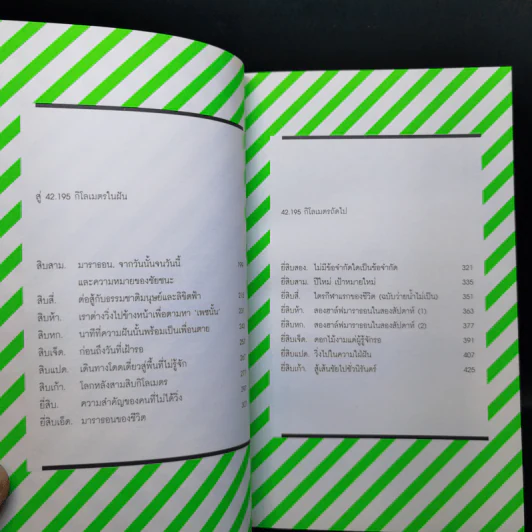 สู่ 42.195 กิโลเมตรในฝัน
สิบสาม. มาราธอน. จากวันนั้นจนวันนี้
และความหมายของชัยชนะ
สิบสี่. ต่อสู้กับธรรมชาติมนุษย์และลิขิตฟ้า
สิบห้า. เราต่างวิ่งไปข้างหน้าเพื่อตามหา 'เพชนั้น'
สิบหก. นาทีที่ความฝันนั้นพร้อมเป็นเพื่อนตาย
สิบเจ็ด. ก่อนถึงวันที่เฝ้ารอ
สิบแปด. เดินทางโดดเดี่ยวสู่พื้นที่ไม่รู้จัก
สิบเก้า. โลกหลังสามสิบกิโลเมตร
ยี่สิบ. ความสำคัญของคนที่ไม่ได้วิ่ง
ยี่สิบเอ็ด. มาราธอนของชีวิต
42.195 กิโลเมตรถัดไป
ยี่สิบสอง. ไม่มีข้อจำกัดใดเป็นข้อจำกัด 321
ยี่สิบสาม. ปีใหม่ เป้าหมายใหม่ 335
ยี่สิบสี่. ไตรกีฬาแรกของชีวิต (ฉบับว่ายน้ำไม่เป็น) 351
ยี่สิบห้า. สองฮาล์ฟมาราธอนในสองสัปดาห์ (1) 363
ยี่สิบหก. สองฮาล์ฟมาราธอนในสองสัปดาห์ (2) 377
ยี่สิบเจ็ด. ดอกไม้งามแด่ผู้รู้จักรอ 391
ยี่สิบแปด. วิ่งไปในความไม้ฝัน 407
ยี่สิบเก้า. สู้เส้นชัยไปชั่วนิรันดร์ 425